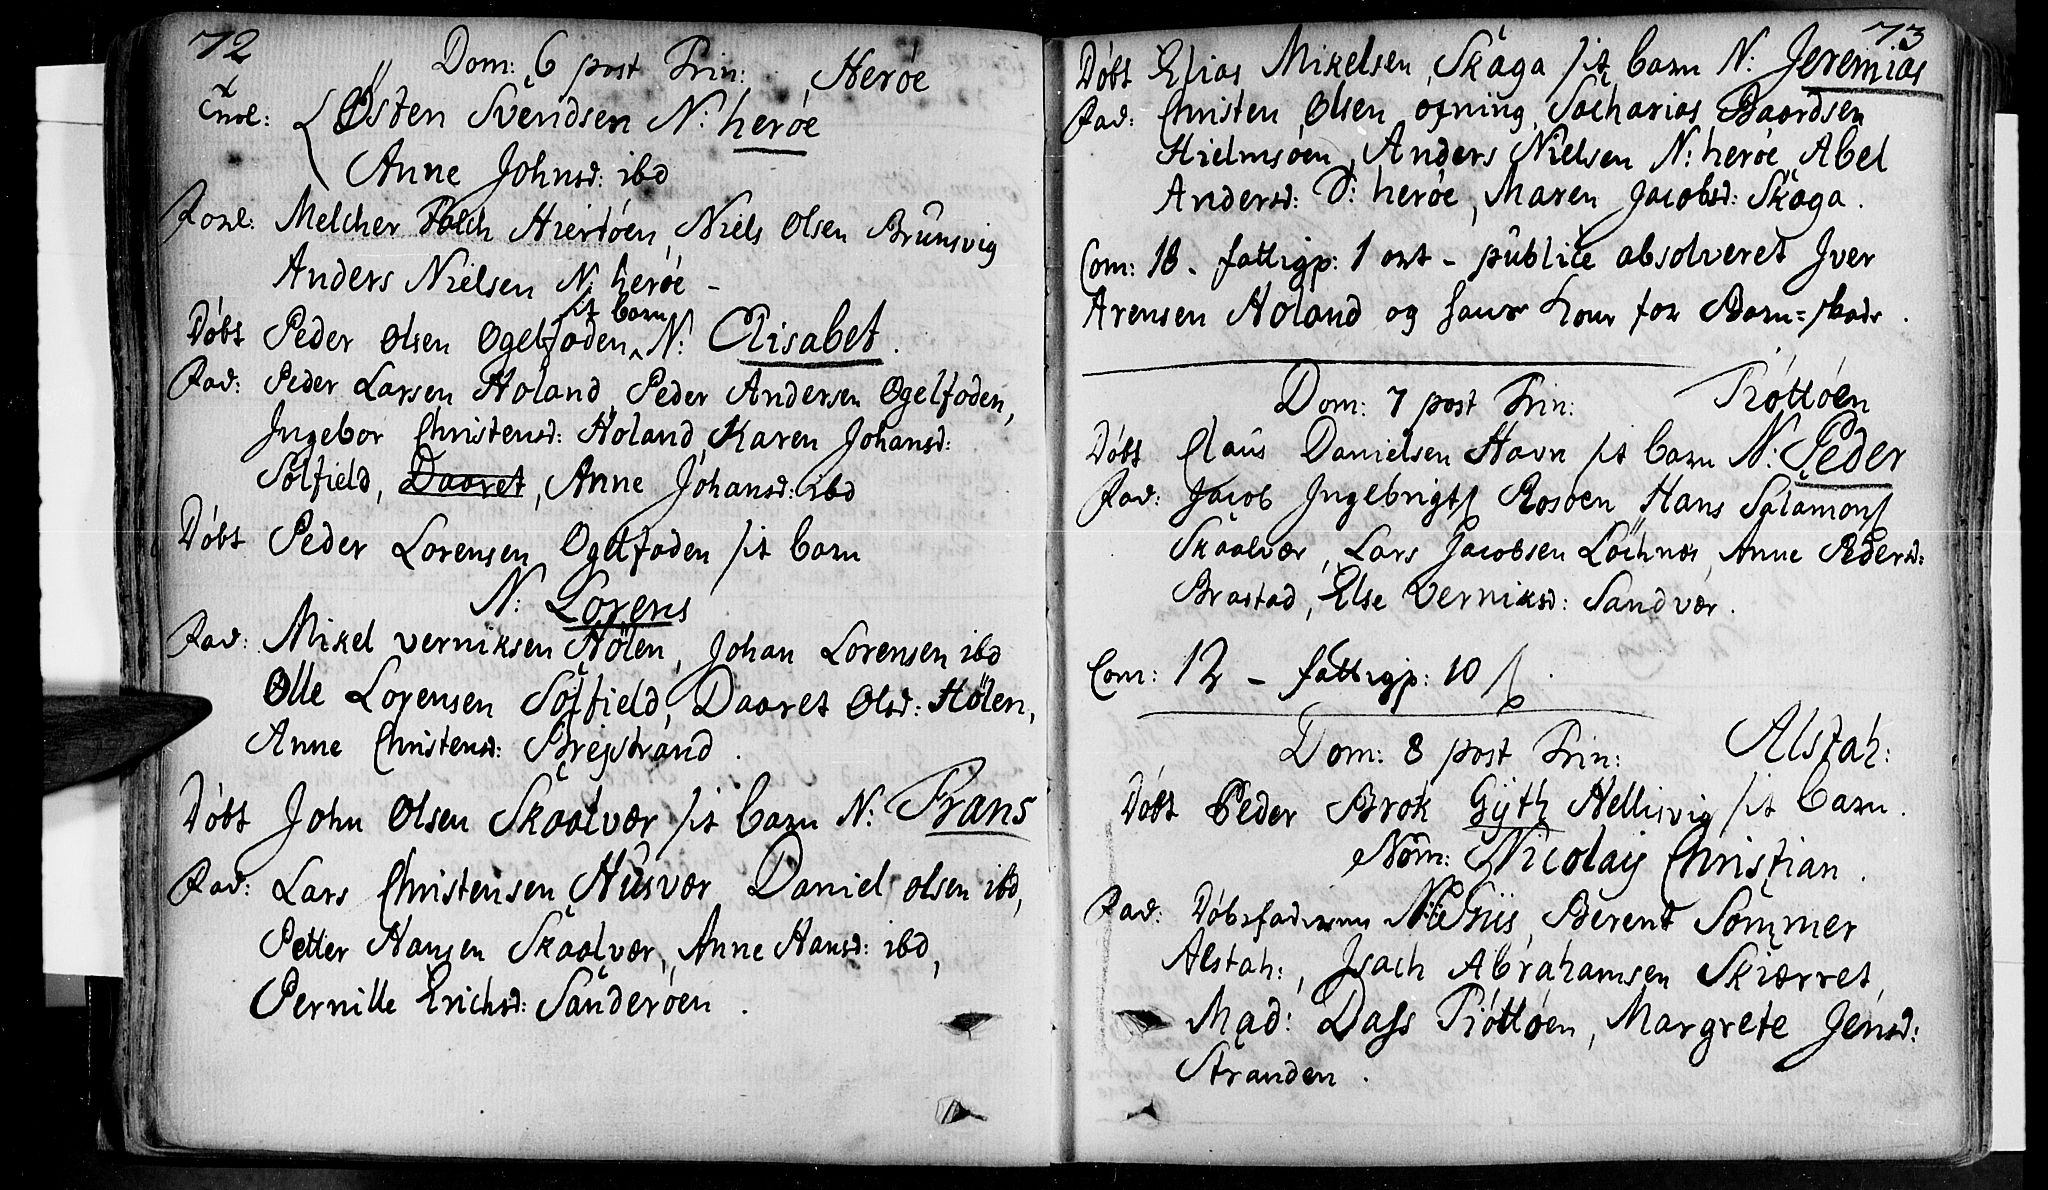 72
Dom: 6 post Trin: , Herøe
Østen Svendsen N: herøe
Anne Johnsd: ibd
Forl: Melcher Falch Hiertøen, Niels Olsen Brunsvig
Anders Nielsen N: herøe -
sit barn
Døbt Peder Olsen Ogelfoden N: Elisabet.
Fad: Peder Larsen Holand, Peder Andersen Ogelfoden,
Ingebor Christensd: Holand, Karen Johansd:
Solfield, Daaret, Anne Johansd: ibd
Døbt Peder Lorensen Ogelfoden sit barn
N: Lorens
Fad: Mikel verniksen Hølen, Johan Lorensen ibd
Olle Lorensen Solfield, Daaret Olsd: Hølen,
Anne Christensd: Brejstrand.
Døbt John Olsen Skaalvær sit barn N: Frans
Fad: Lars Christensen Husvær Daniel olsen ibd,
Petter Hansen Skaalvær, Anne Hansd: ibd,
Pernille Erichsd: Sanderøen.
73
Døbt Elias Mikelsen, Skaga sit barn N: Jeremias
Fad: Christen Olsen øxning, Sacharias Baardsen
Hielmsøen, Anders Nielsen N: herøe, Abel
Andersd: S: herøe, Maren Jacobsd: Skaga.
Com: 18 - fattigp: 1 ort - publice absolveret Iver
Arensen Holand og hans kone for Barn=
Dom: 7 post Trin: Tiøttøen
Døbt Claus Danielsen Havn sit barn N: Peder
Fad: Jacob Ingebrigts Rosøen, Hans Salamons
Skaalvær, Lars Jacobsen Løchnæs, Anne Pedersd:
Brastad, Else Verniksd: Sandvær.
Com: 12 - fattigp: 10 ß.
Dom: 8 post Trin: Alstah:
Døbt Peder Brok Gyth Hellisvig sit barn.
Nom: Nicolaij Christian.
Fad: Berent Sommer
Alstah:, Isach Abrahamsen Skiærret,
Mad: Dass Tiøttøen, Margrete Jensd:
Stranden.